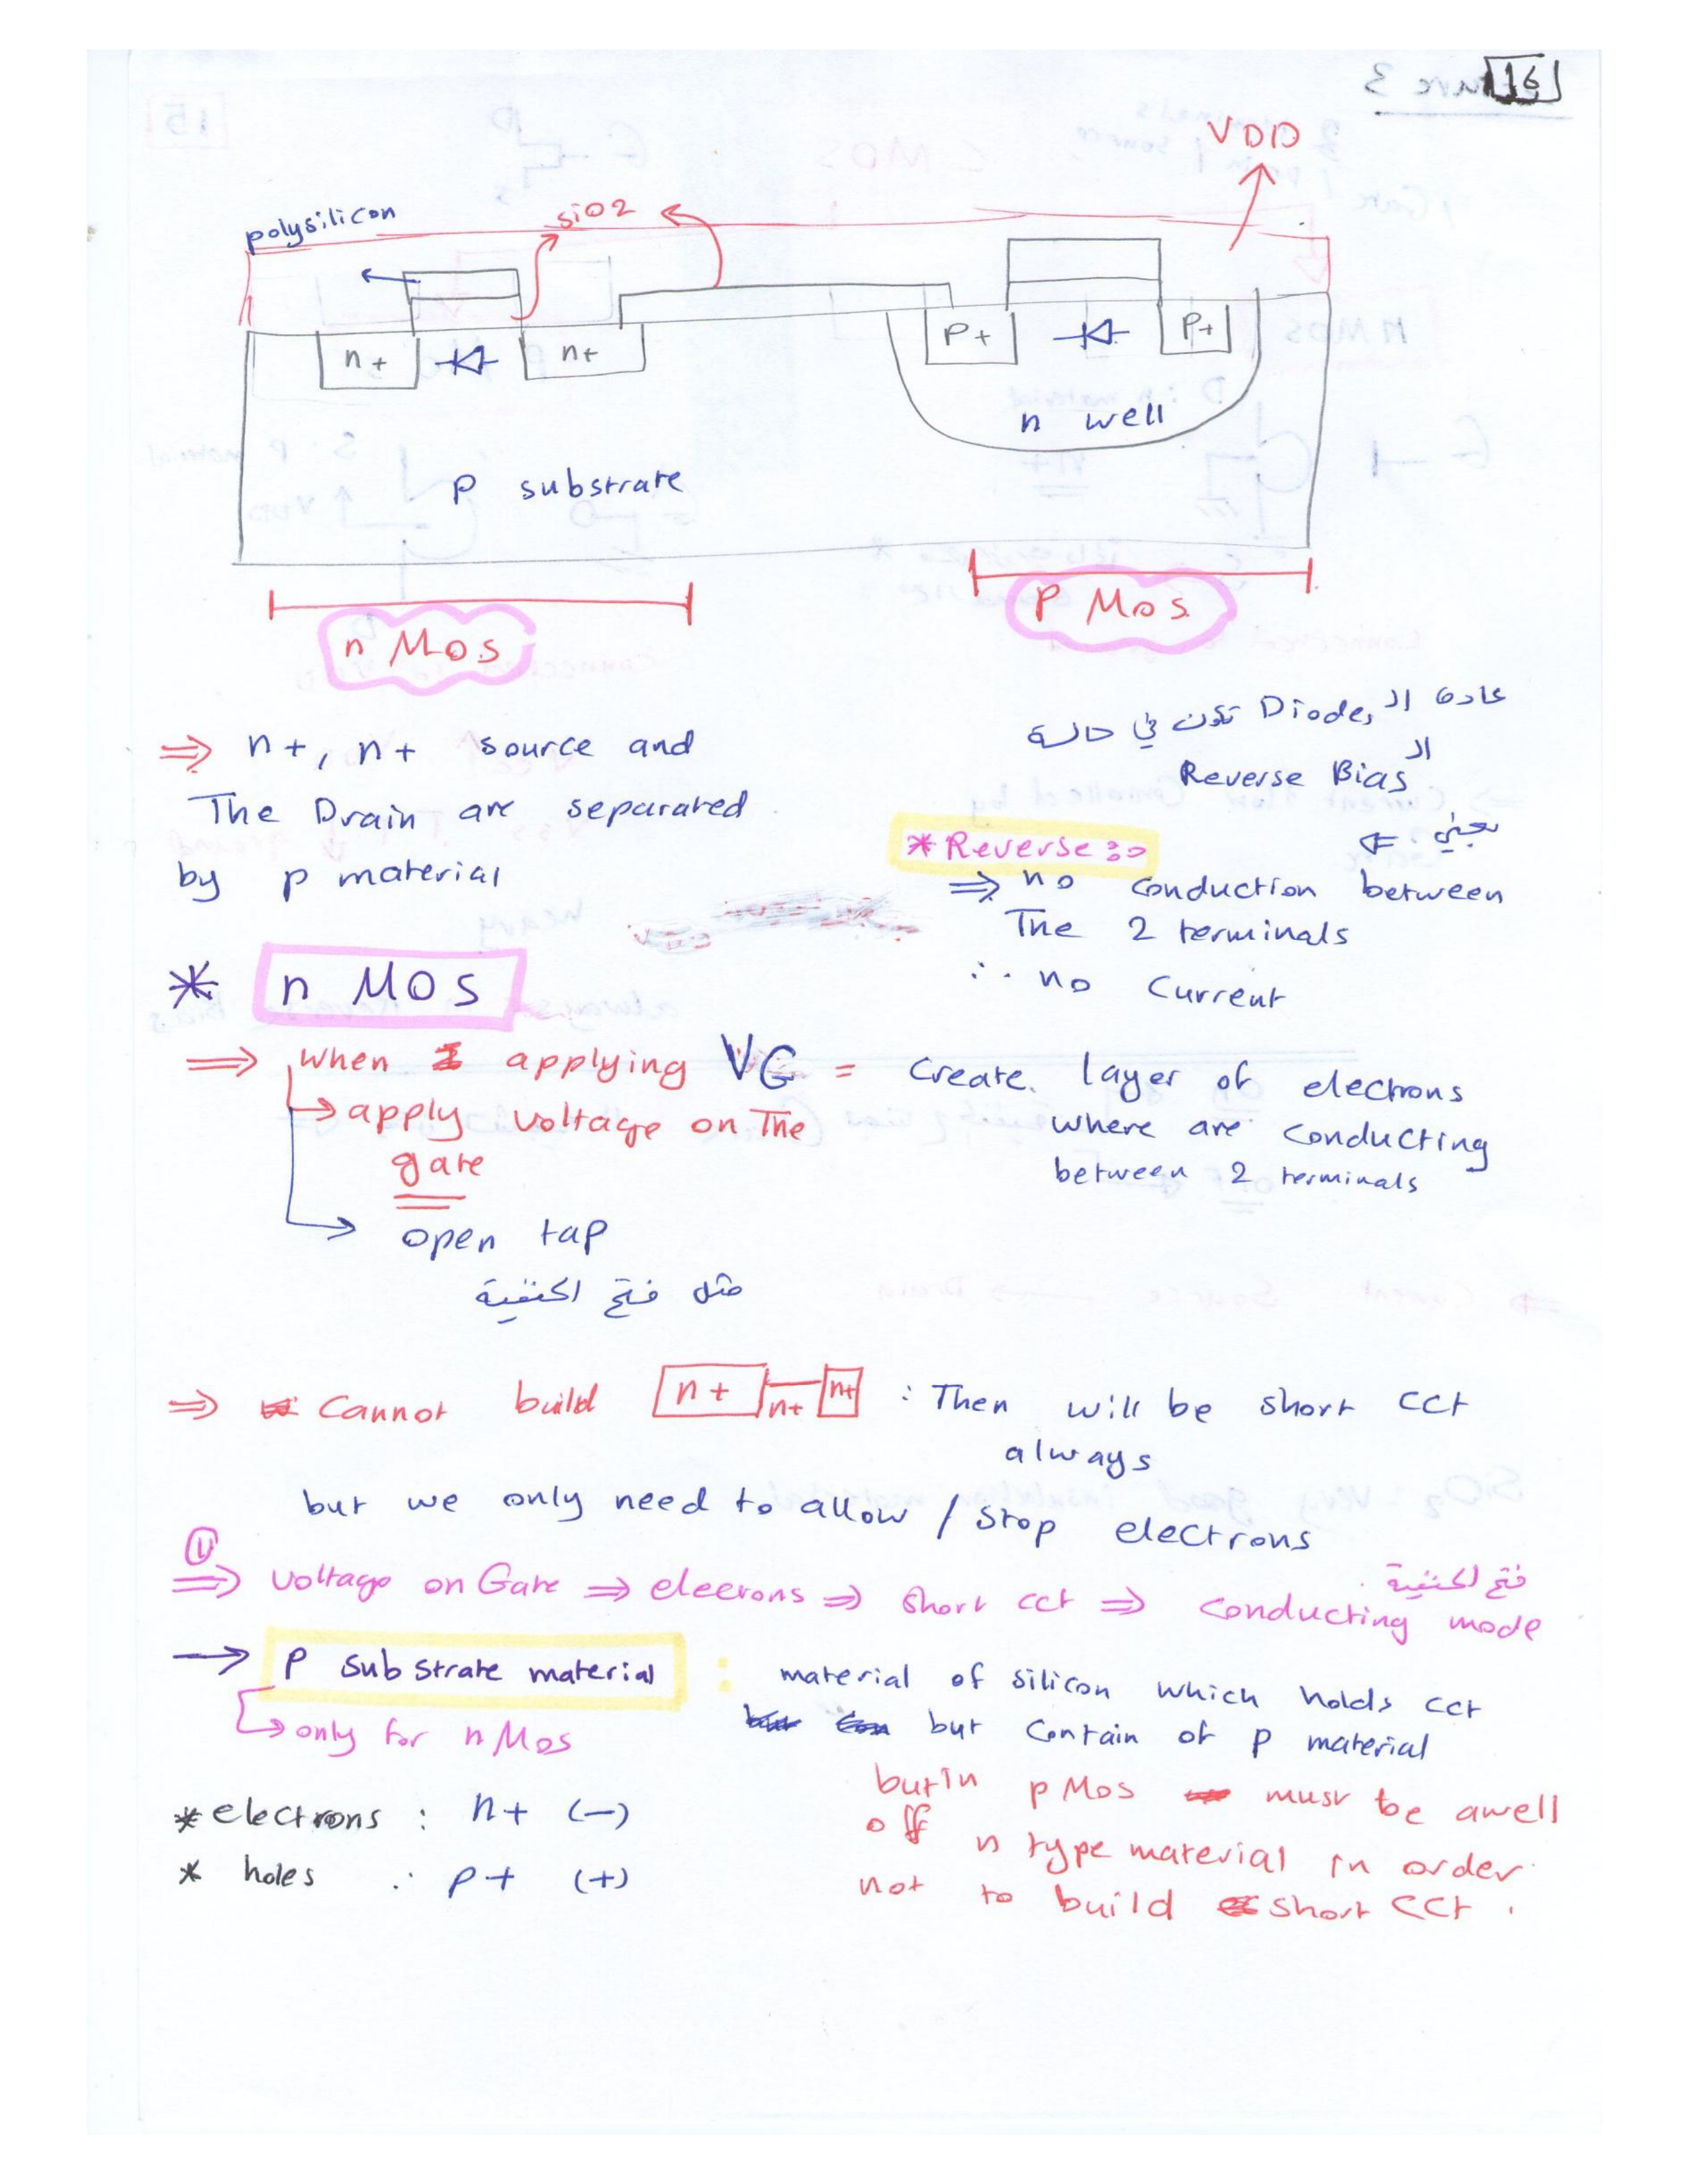 16
VDD
polysilicon
SiO2
n+
n+
P+
P+
n well
P substrate
n Mos
P Mos
⇒ n+, n+ source and
The Drain are separated
by p material
عادة ال Diode, تكون في حالة
ال
Reverse Bias
يعني ⇐
* Reverse :>
⇒ no conduction between
The 2 terminals
∴ no Current
* n MOS
⇒ when applying VG = Create layer of electrons
where are conducting
between 2 terminals
→ apply voltage on The
gate
→ open tap
مثل فتح الحنفية
⇒ Cannot build n+ n+ n+ : Then will be short cct
always
but we only need to allow / stop electrons
⇒ voltage on Gate ⇒ eleerons ⇒ short cct ⇒ conducting mode
فتح الحنفية
→ P substrate material : material of silicon which holds cct
but contain of p material
→ only for n Mos
but in p Mos must be a well
off n type material in order
not to build short cct .
* electrons : n+ (–)
* holes : p+ (+)